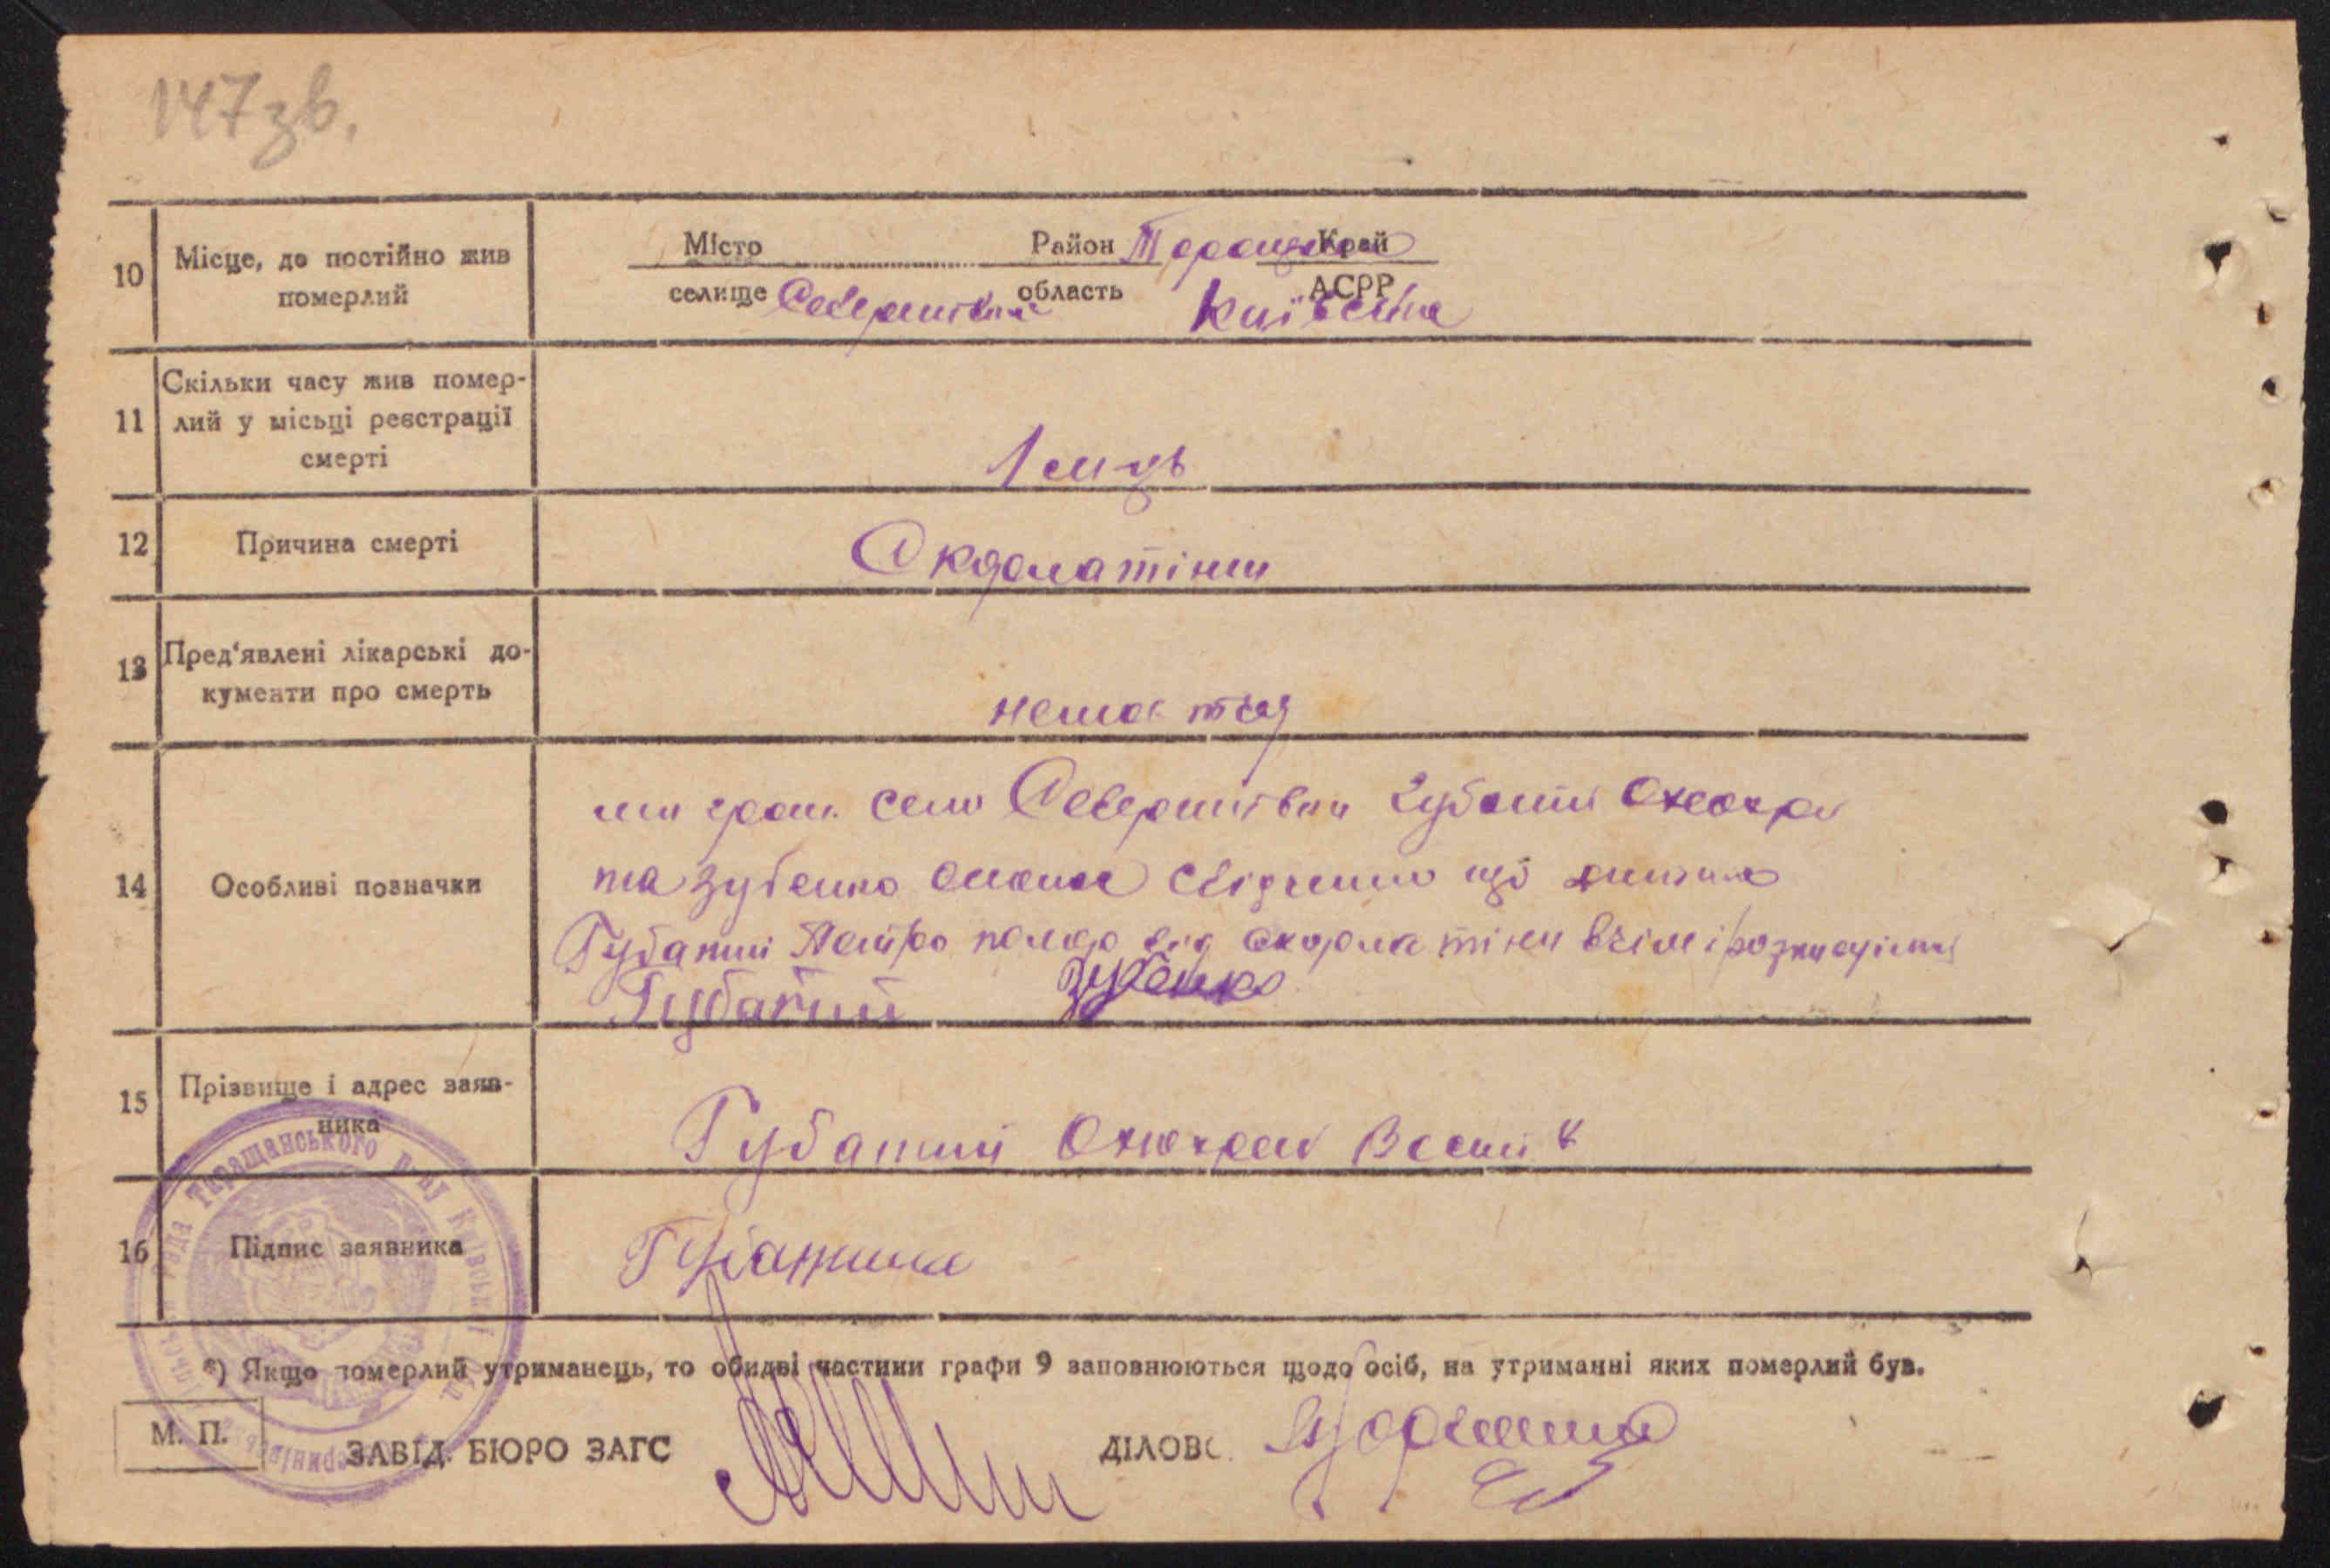 147 зв.
10 Місце, де постійно жив померлий
Місто Район Таращанськ Край
селище Северинівка область АСРР Київська
11 Скільки часу жив помер-
лий у місьці реєстрації
смерті
1 м-ць
12 Причина смерті
Скорлатіни
13 Пред'явлені лікарські до-
кументи про смерть
нема
14 Особливі позначки
ми гром. село Северинівки Губатий
та Зубенко свідчимо що дитина
Губатий Петро помер від скорлатіни в чім і розписуємся
Губатий Зубенко
15 Прізвище і адрес заяв-
ника
Губатий
16 Підпис заявника
Губатий
*) Якщо померлий утриманець, то обидві частини графи 9 заповнюються щодо осіб, на утриманні яких померлий був.
М. П.
ЗАВІД. БЮРО ЗАГС ДІЛОВ
рада Таращанського р-ні Київської